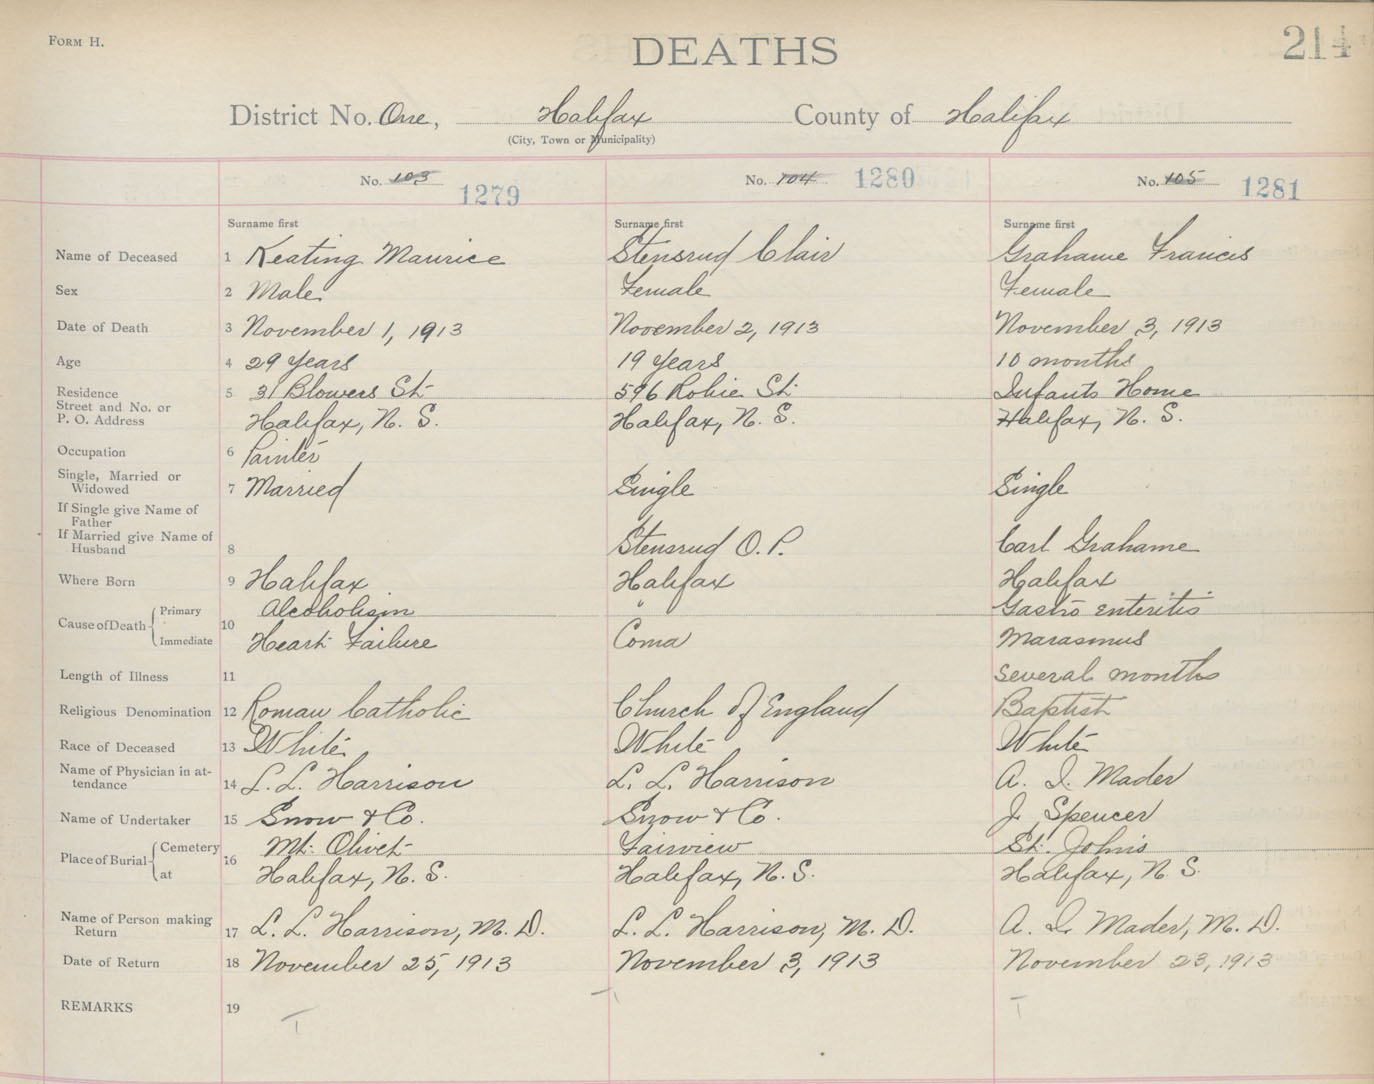 FORM H.
DEATHS
214
District No. One, Halifax County of Halifax
(City, Town or Municipality)
No. 103 1279 No. 104 1280 No. 105 1281
Surname first Surname first Surname first
Name of Deceased 1 Keating Maurice Stensrud Clair Grahame Francis
Sex 2 Male Female Female
Date of Death 3 November 1, 1913 November 2, 1913 November 3, 1913
Age 4 29 Years 19 Years 10 months
Residence 5 31 Blowers St 596 Robie St Infants Home
Street and No. or
P. O. Address Halifax, N. S. Halifax, N. S. Halifax, N. S.
Occupation 6 Painter
Single, Married or
Widowed 7 Married Single Single
If Single give Name of
Father
If Married give Name of
Husband 8 Stensrud O. P. Carl Grahame
Where Born 9 Halifax Halifax Halifax
Primary Alcoholism " Gastro enteritis
Cause of Death 10
Immediate Heart Failure Coma Marasmus
Length of Illness 11 Several months
Religious Denomination 12 Roman Catholic Church of England Baptist
Race of Deceased 13 White White White
Name of Physician in at-
tendance 14 L. L. Harrison L. L. Harrison A. I. Mader
Name of Undertaker 15 Snow & Co. Snow & Co. J Spencer
Cemetery Mt. Olivet Fairview St. Johns
Place of Burial 16
at Halifax, N. S. Halifax, N. S. Halifax, N. S.
Name of Person making
Return 17 L. L. Harrison, M. D. L. L. Harrison, M. D. A. I. Mader, M. D.
Date of Return 18 November 25, 1913 November 3, 1913 November 23, 1913
REMARKS 19